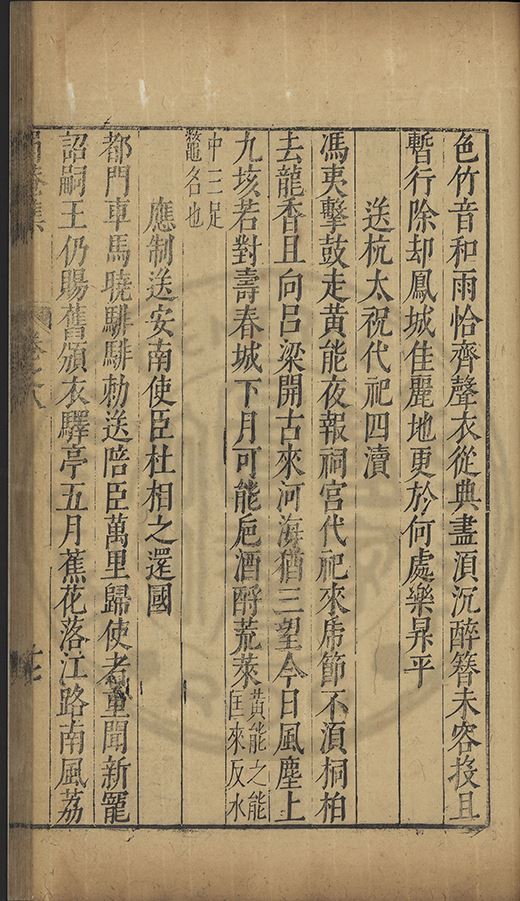 色竹音和雨恰齊聲衣從典盡湏沉醉簪未容投且
暫行除却鳳城佳麗地更於何處樂昇平
送杭太祝代祀四瀆
馮夷擊鼓走黄能夜報祠宫代祀來虎節不湏桐柏
去龍香且向吕梁開古來河海猶三望今日風塵上
九垓若對壽春城下月可能巵酒酹荒萊黄能之能
囯來反水
中三足
鼈名也
應制送安南使臣杜相之還國
都門車馬曉騑騑勅送陪臣萬里歸使者重聞新寵
詔嗣王仍賜舊頒衣驛亭五月蕉花落江路南風荔